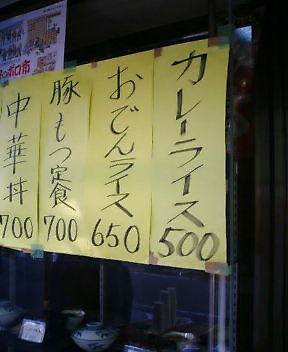 カレーライス
500
おでんライス
650
豚もつ定食
700
中華丼
700